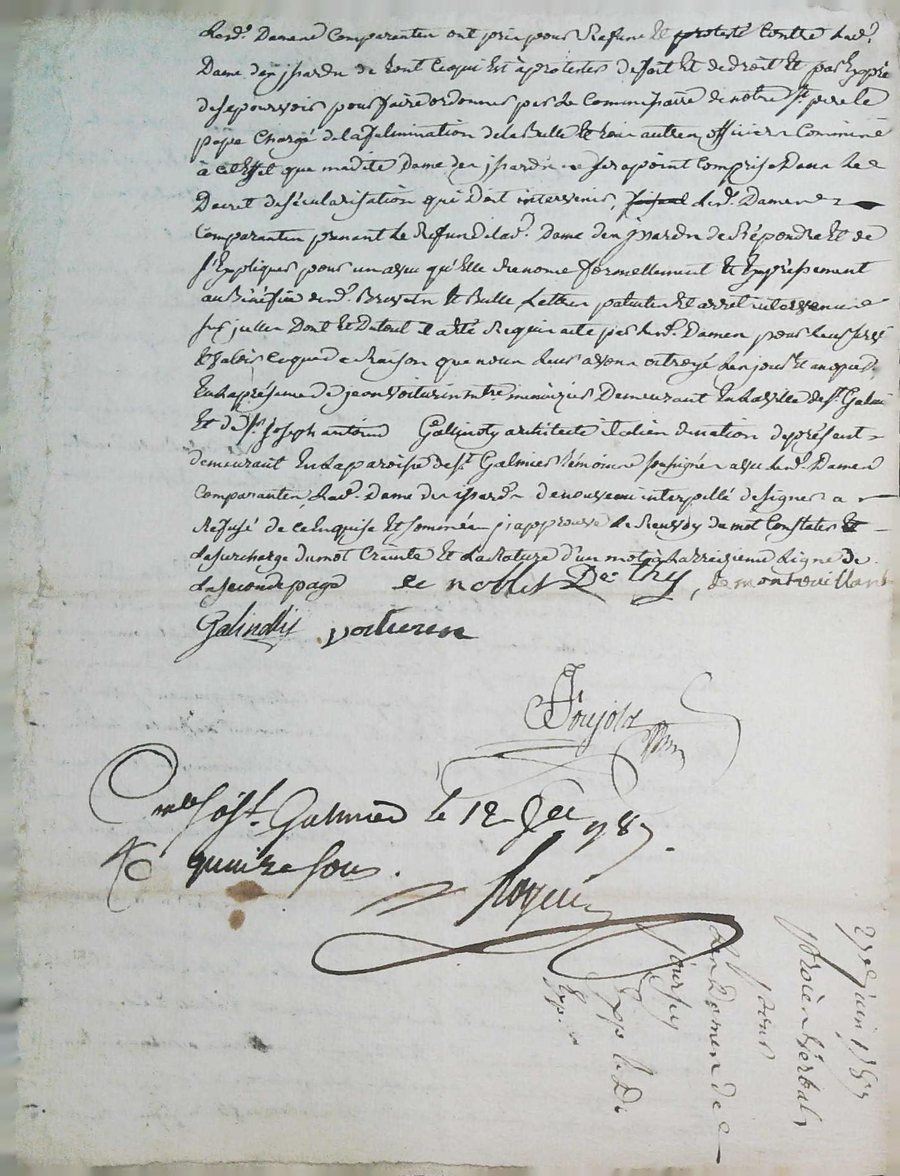 Lesd. Dames Comparantes ont pris pour Refus Et protesté Contre lad.
Dame des jssards de tout Ce qui Est à protester de fait Et de droit Et par Exprès
de se pourvoir pour faire ordonner par Le Commissaire de notre St. pere le
pape Chargé de la fulmination de la Bulle Et tous autres officiers Commis
à Cet Effet que madite Dame des jssards ne sera point Comprise Dans Le
Decret de sécularisation qui Doit intervenir, Lesd. Dames
Comparantes prenant Le Refus de lad. Dame des jssards de Répondre Et de
s'Expliquer pour un aveu qu'Elle Renonce formellement Et Expressement
au Bénéfice desd. Brevets Et Bulle Lettres patentes Et arret intervenus
sur jcelles Dont Et Du tout il a été Requis acte par Lesd. Dames pour Leur servir
Et valoir Ce que de Raison que nous Leur avons octroyé Les jour Et an que d.
En la présence de jean voiturin mtre. menuizier Demeurant En la ville de St. Galmier
Et de Sr. Joseph antoine Gallinoty architecte italien de nation de présent
demeurant En la paroisse de St. Galmier témoins soussignés avec Lesd. Dames
Comparantes, Lad. Dame des jssards de nouveau interpellé de signer a
Refusé de Ce Enquise Et sommée, j'approuve le du mot Constater Et
la surcharge du mot Crainte Et La Rature d'un mot à la treizieme Ligne de
La seconde page De Try, de montrouillant
Galinotti voiturin
Poujols
Cnlé à St. Galmier le 12 787.
R quinze sous.
27e juin 1787
procès Verbal
pour
Les Dames de
jourscy
Exp. le D.
Exp.